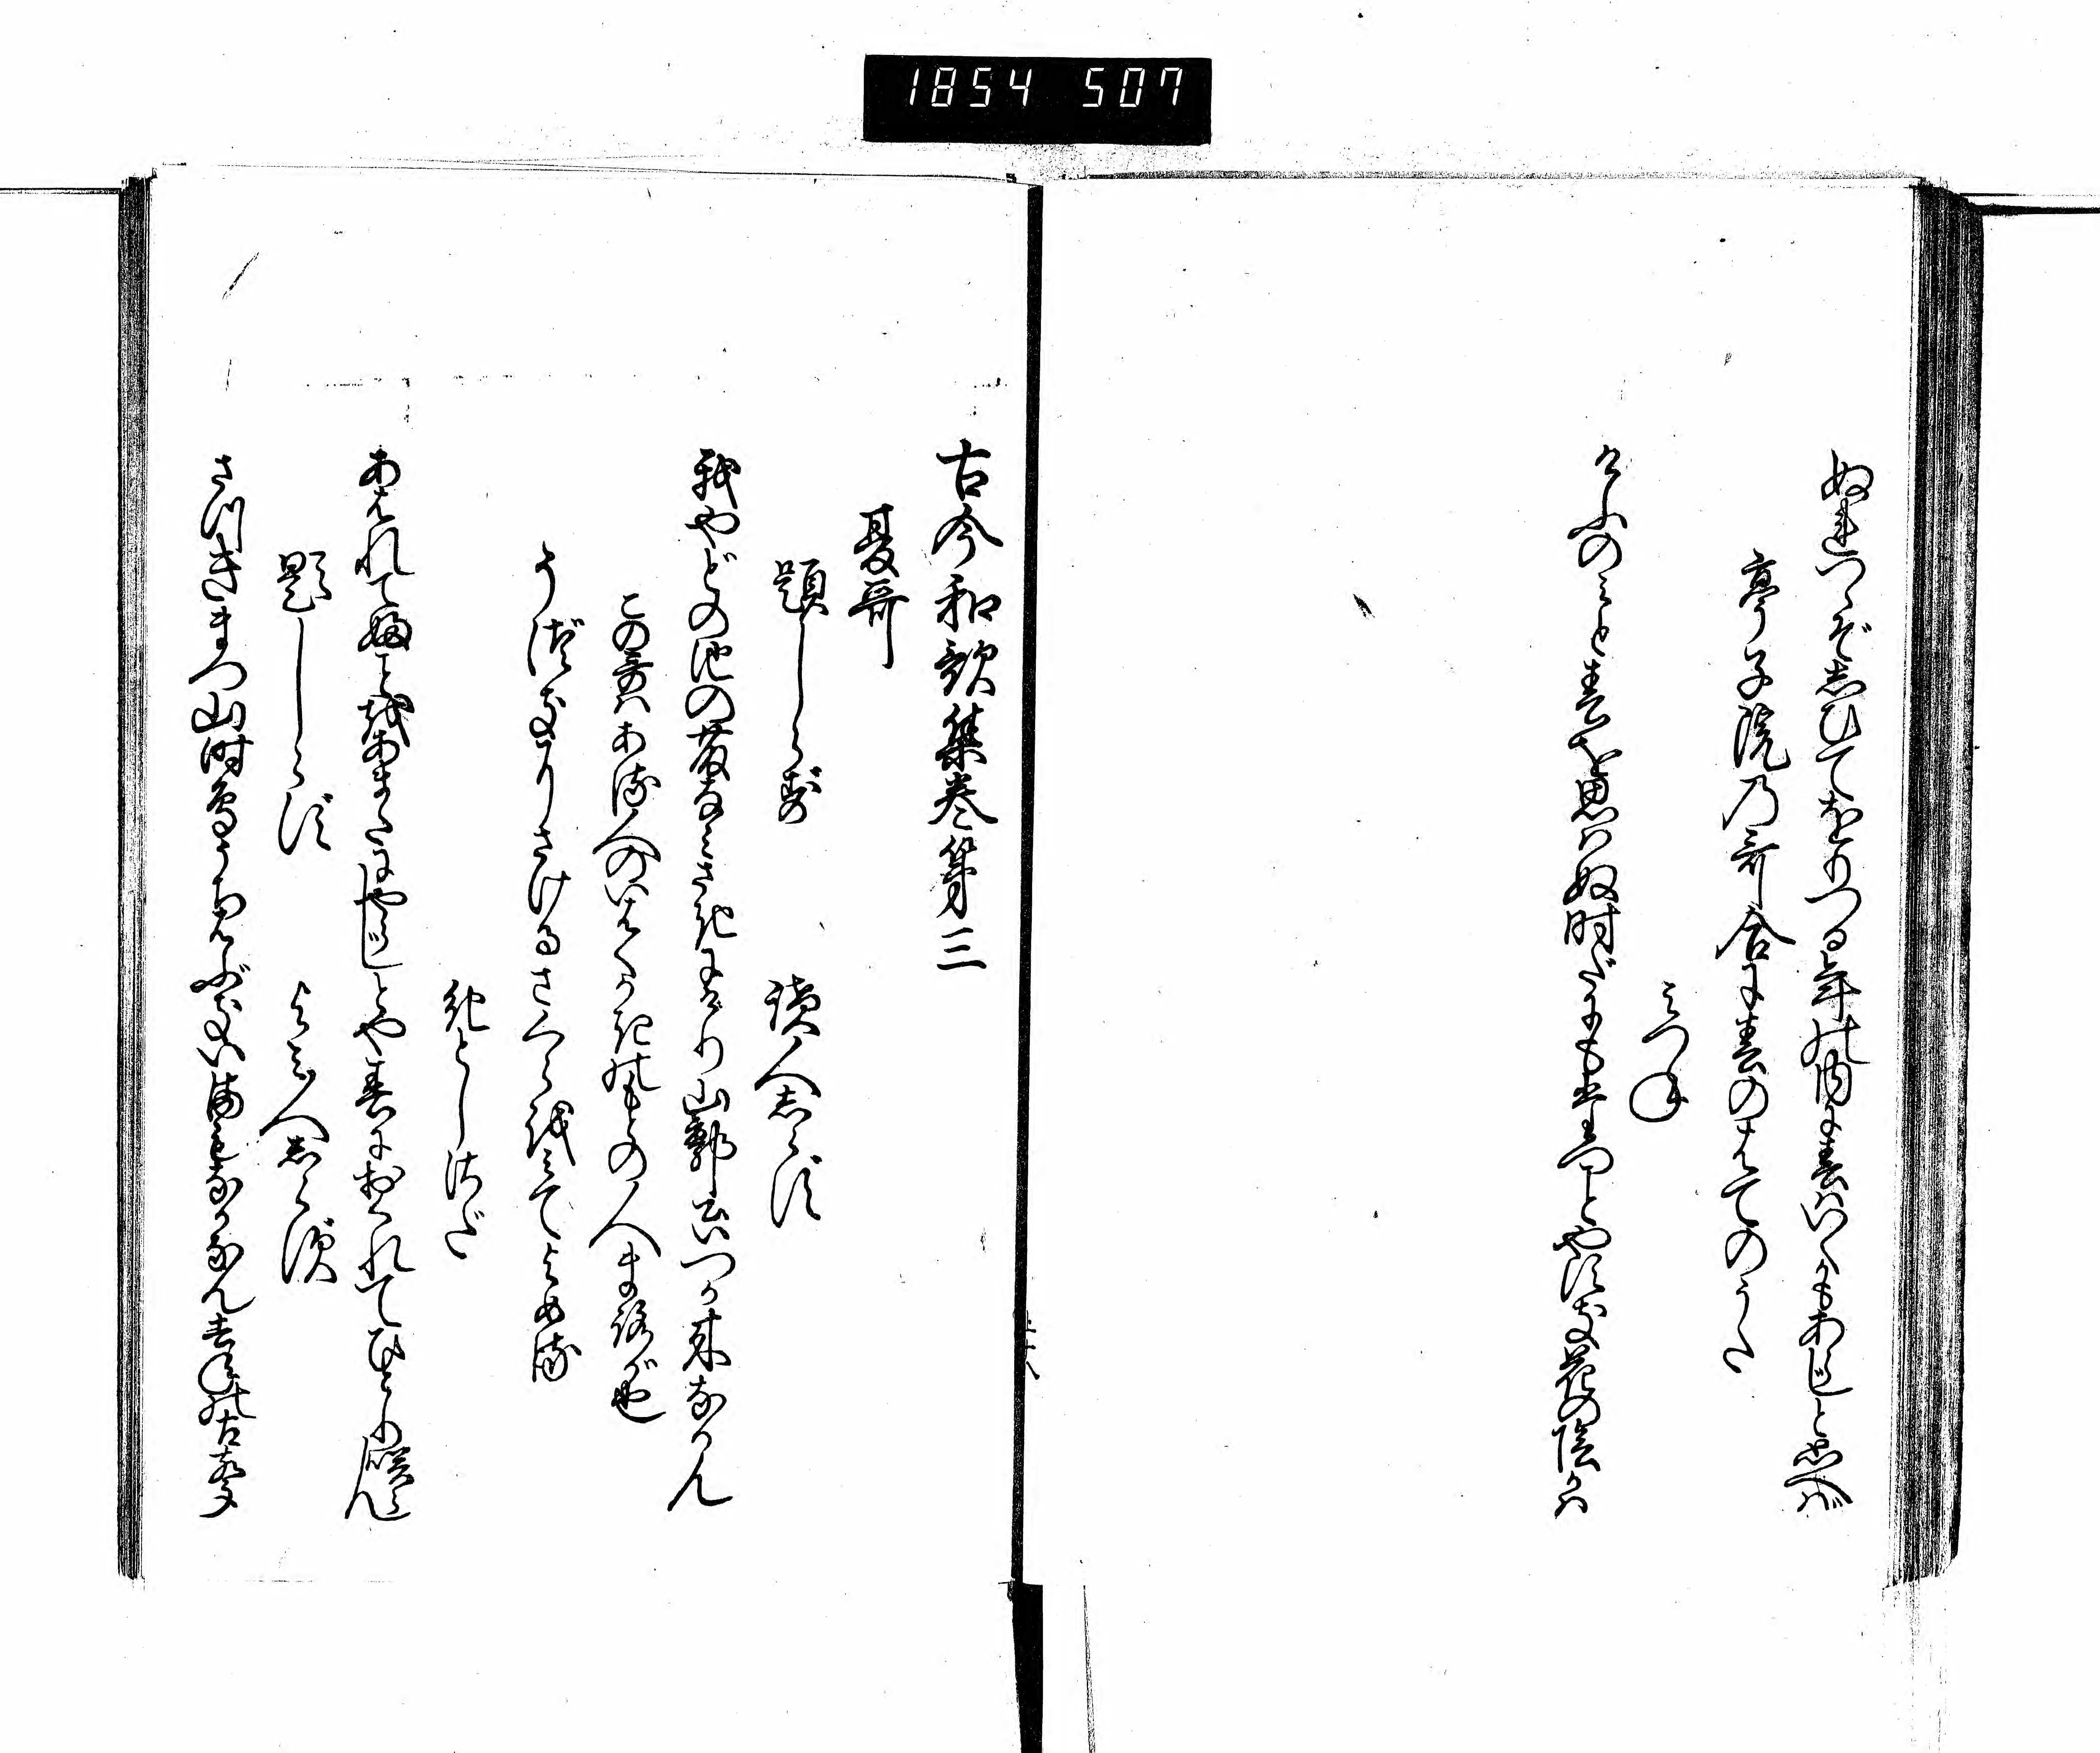 1854 507
ぬれつゝぞしひてをりつる年の内に春はいくかもあらじと思へば
亭子院乃哥合に春のはてのうた
みつね
けふのみと春を思はぬ時だにも立ことやすき花の陰かは
古今和歌集巻第三
夏哥
題しらず
読人しらず
我やどの池の藤なみさきにけり山郭公いつか来なかん
この哥はある人のいはくかきのもとの人まろが也
う月にさけるさくらをみてよめる
紀としさだ
あはれてふことをあまたにやらじとや春におくれてひとり咲らん
題しらず
よみ人しらず
さつきまつ山時鳥うちはぶき今もなかなん去年の古声